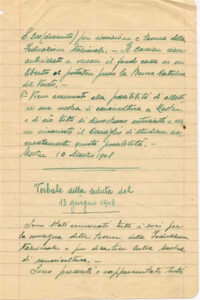 per iscrizione e Tessera della
Federazione Nazionale. - Il cassiere viene
autorizzato a versare il fondo cassa su un
libretto al portatore presso la Banca Cattolica
del Veneto. -
E' viene accennato alla possibilità di allesti
re una mostra di a Mestre
e di ciò tutti si dimostrano entusiasti e vie
ne il Consiglio di studiare ac
curatamente questa possibilità.
Mestre 10 Marzo 1948
Verbale della seduta del
13 giugno 1948
Sono stati convocati tutti i soci per
la consegna delle Tessere della Federazione
Nazionale e per discutere sulla mostra
di
Sono presenti o rappresentati tutti